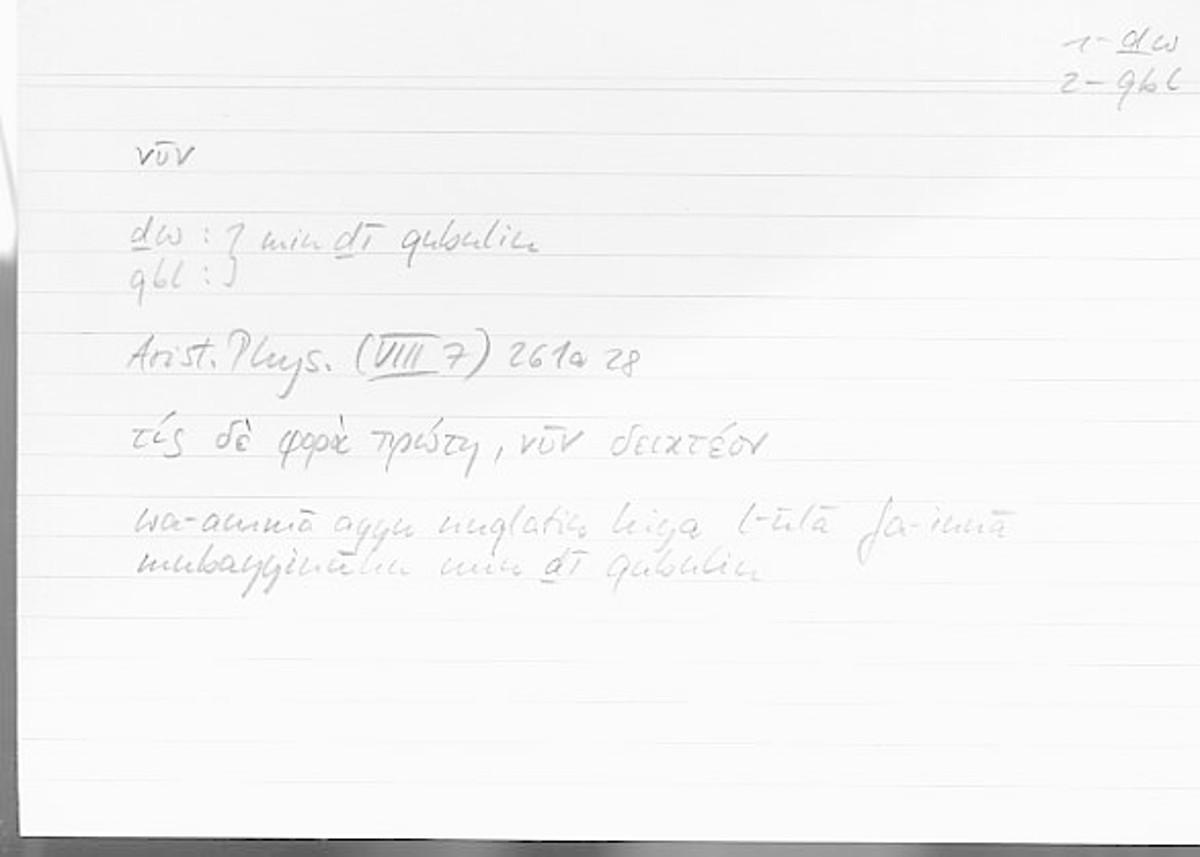 1 - ḏw
2 - qbl
νῦν
ḏw : } min ḏī qubulin
qbl : }
Arist. Phys. (VIII 7) 261a 28
τίς δὲ φορὰ πρώτη, νῦν δεικτέον
wa-ammā ayyu nuqlatin hiya l-ūlā fa-innā
mubayyinūhu min ḏī qubulin